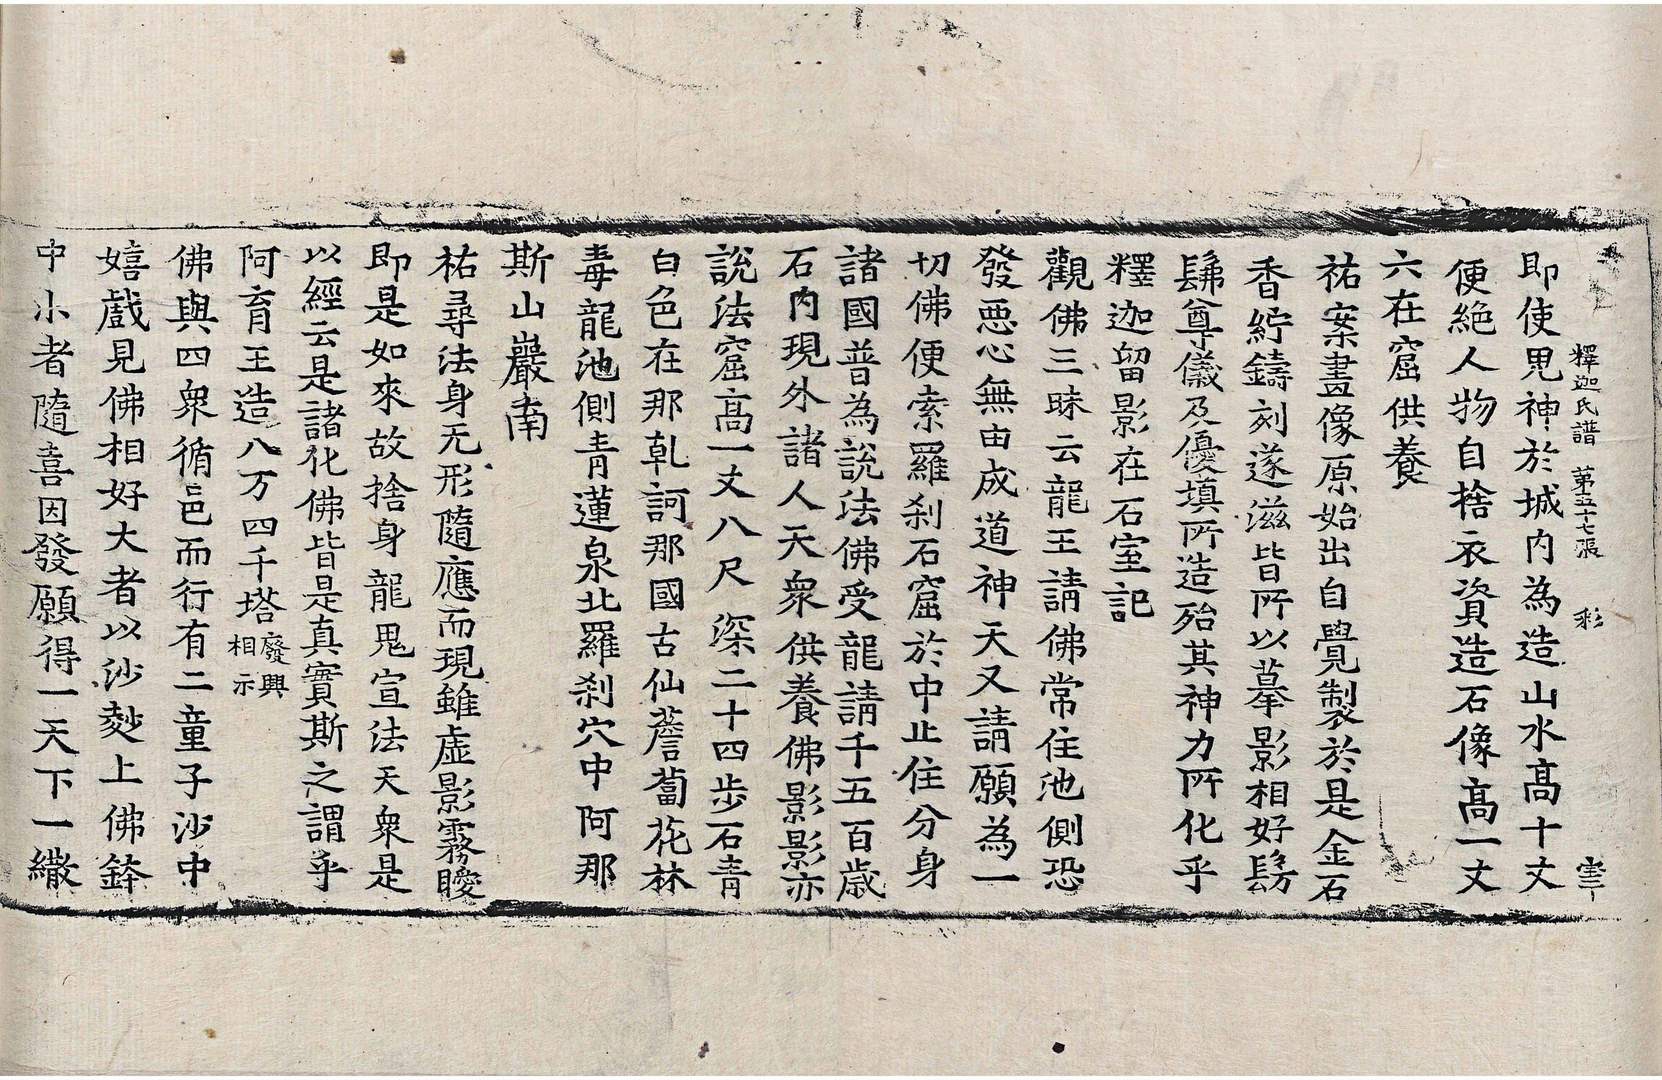 釋迦氏譜 第五十七張 彩
即使鬼神於城內為造山水高十丈
便絕人物自捨衣資造石像高一丈
六在窟供養
祐案畫像原始出自覺製於是金石
香紵鑄刻遂滋皆所以摹影相好髣
髴尊儀及優填所造殆其神力所化乎
釋迦留影在石室記
觀佛三昧云龍王請佛常住池側恐
發惡心無由成道神天又請願為一
切佛便索羅剎石窟於中止住分身
諸國普為說法佛受龍請千五百歲
石內現外諸人天衆供養佛影影亦
說法窟高一丈八尺深二十四步石青
白色在那乹訶那國古仙薝蔔花林
毒龍池側青蓮泉北羅剎穴中阿那
斯山巖南
祐尋法身无形隨應而現雖虛影霧曖
即是如來故捨身龍鬼宣法天衆是
以經云是諸化佛皆是真實斯之謂乎
阿育王造八万四千塔廢興相示
佛與四衆循邑而行有二童子沙中
嬉戲見佛相好大者以沙麨上佛鉢
中小者隨喜因發願得一天下一繖